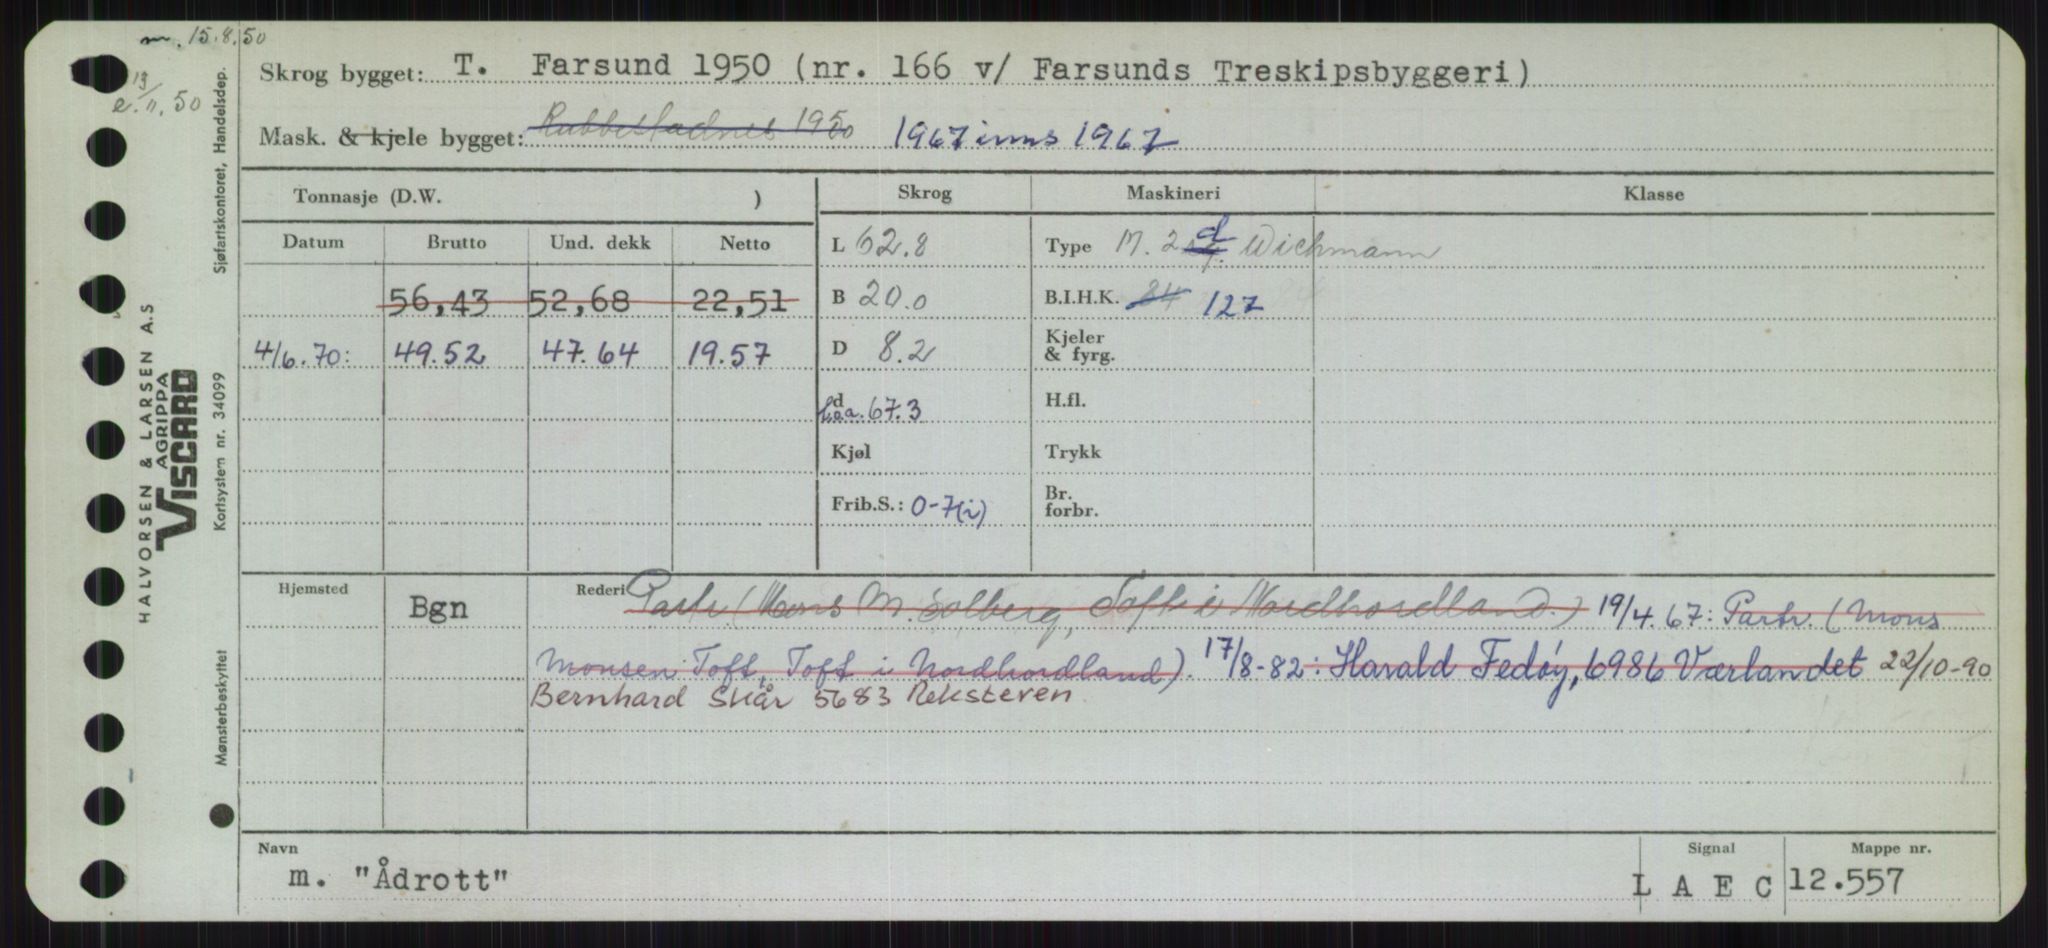 m. 15.8.50
e. 13/11.50
Skrog bygget: T. Farsund 1950 (nr. 166 v/ Farsunds Treskipsbyggeri)
Mask. & kjele bygget: Rubbestadnes 1950 1967 inns 1967
Tonnasje (D.W. ) Skrog Maskineri Klasse
Datum Brutto Und. dekk Netto L 62.8 Type M. 2 d Wichmann
56,43 52,68 22,51 B 20.0 B.I.H.K. 84 127
4/6.70: 49.52 47.64 19.57 D 8.2 Kjeler & fyrg.
d l.o.a. 67.3 H.fl.
Kjøl Trykk
Frib.S.: 0-7(i) Br. forbr.
Hjemsted Bgn Rederi Partr (Mons M. Solberg, Toft i Nordhordland.) 19/4.67: Partr. (Mons
Monsen Toft, Toft i Nordhordland). 17/8-82: Harald Fedøy, 6986 Værlandet 22/10-90
Bernhard Skår 5683 Reksteren
Navn Signal Mappe nr.
m. "Ådrott" L A E C 12.557
HALVORSEN & LARSEN A.S
AGRIPPA
VISCARD
Sjøfartskontoret, Handelsdep.
Kortsystem nr. 34099
Mønsterbeskyttet